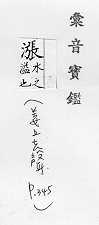 彙音寶鑑
漲水之溢也
(姜上去聲
P.345)